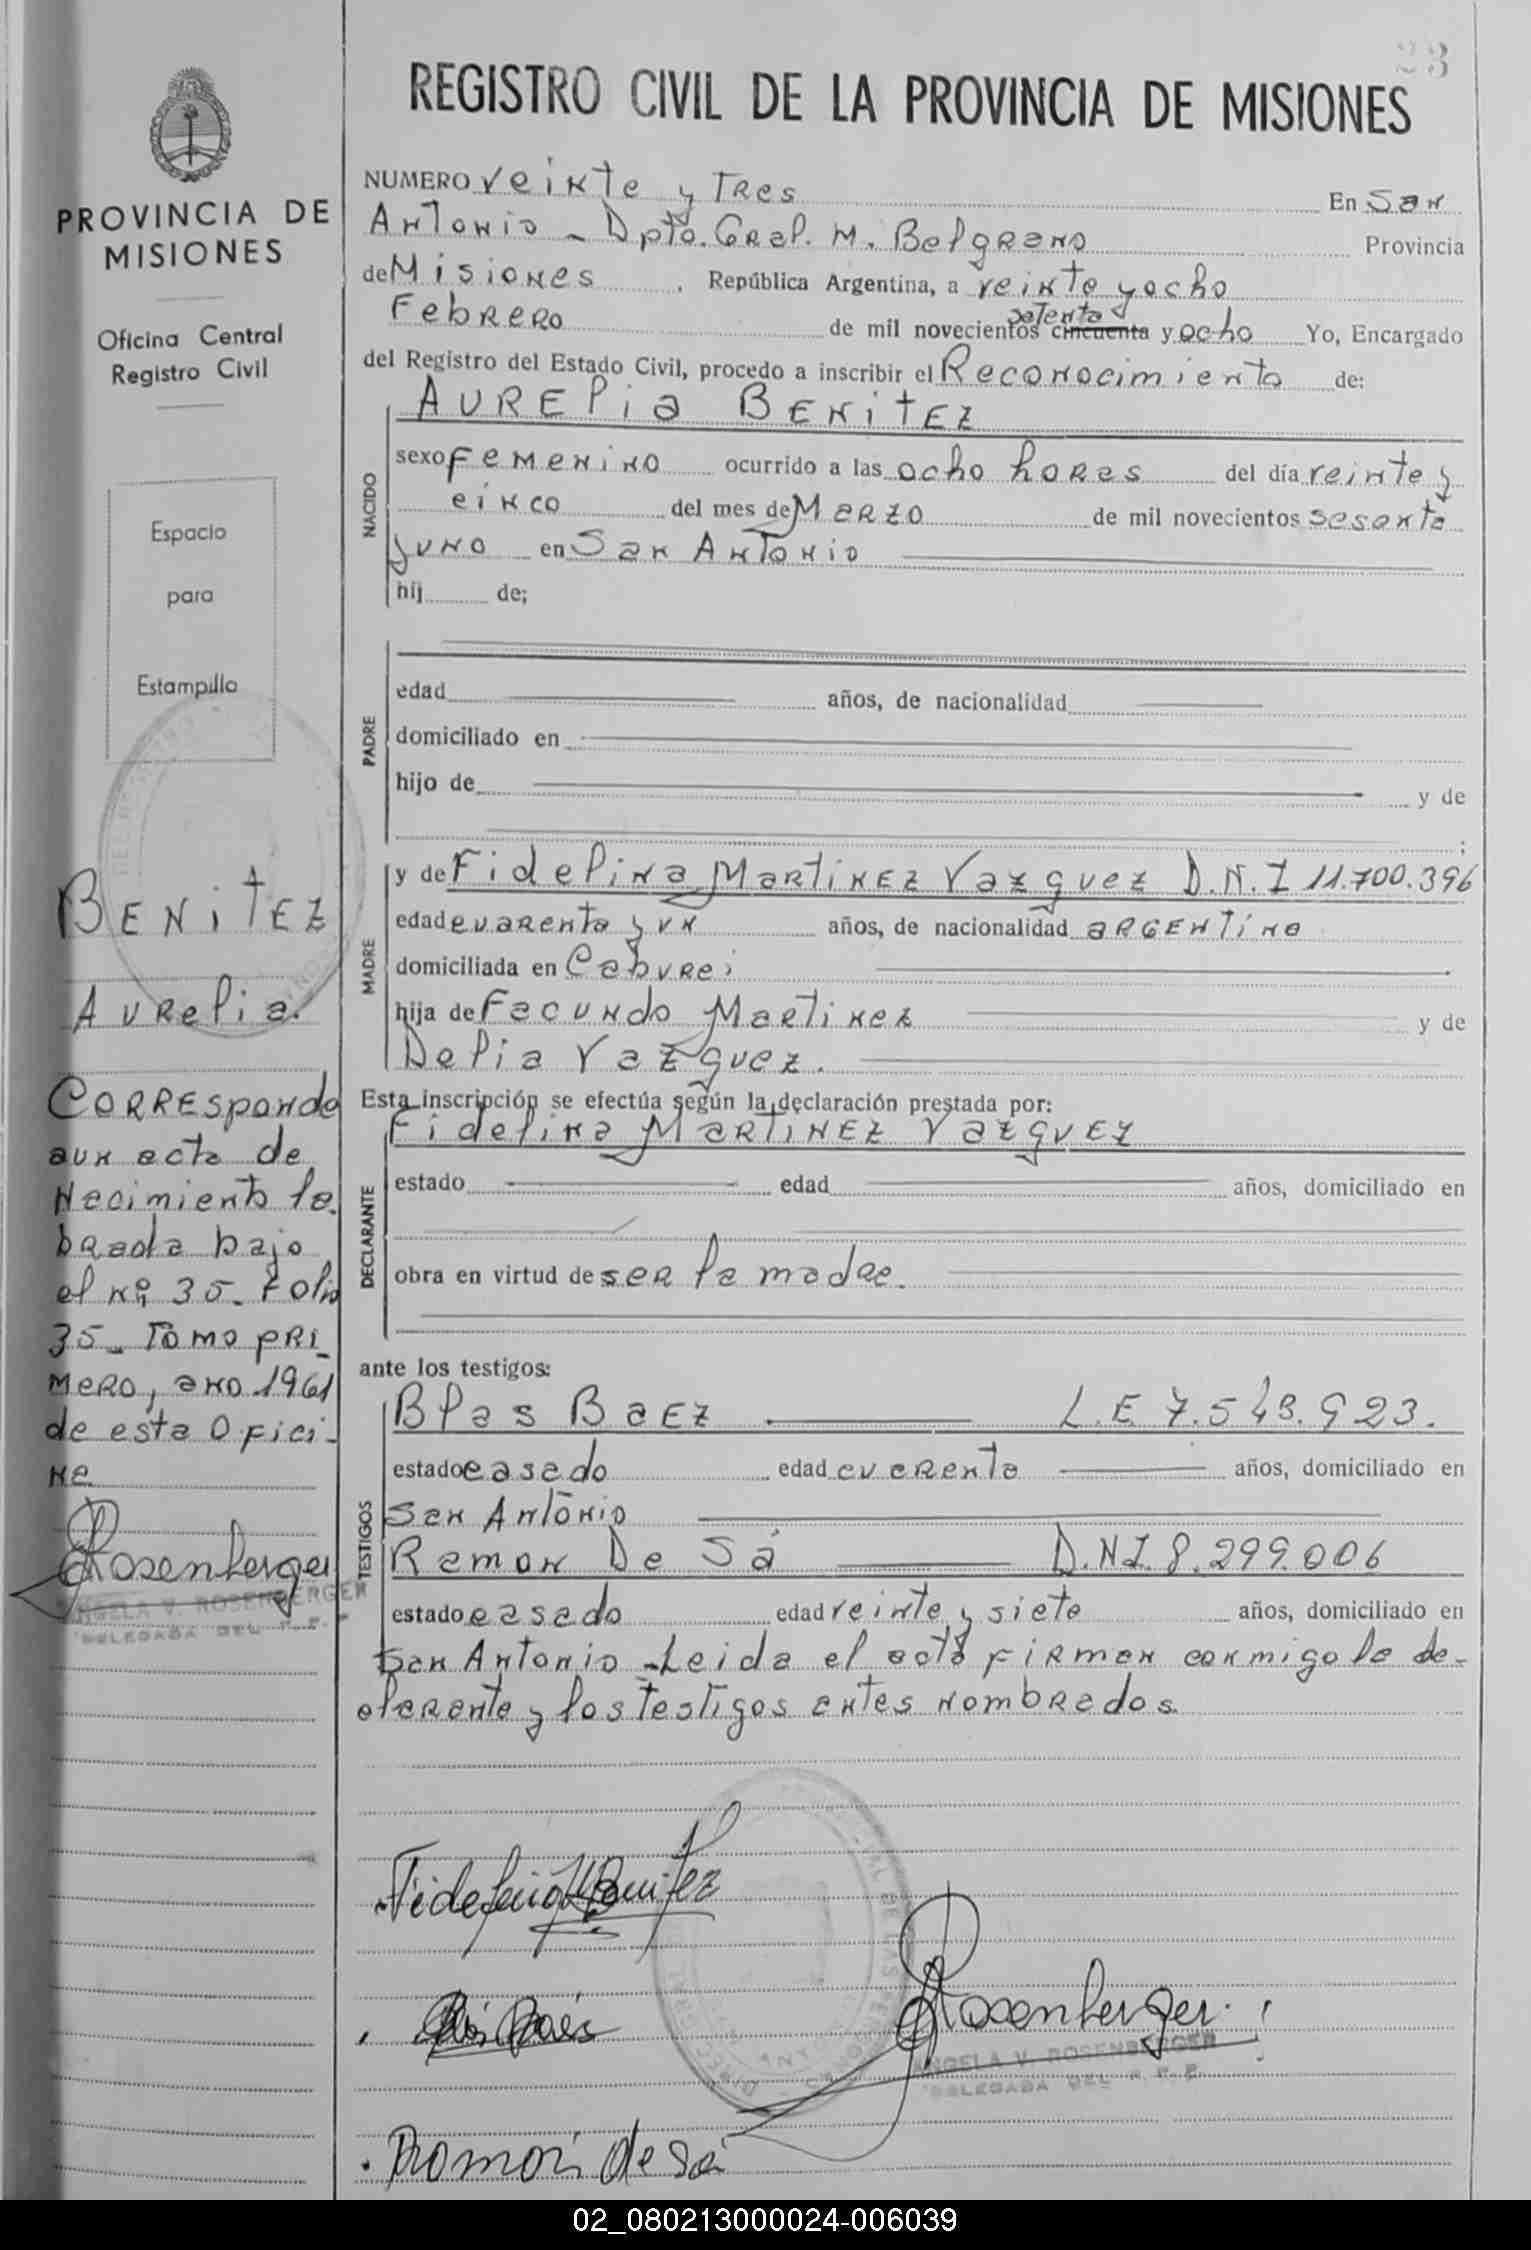 23
REGISTRO CIVIL DE LA PROVINCIA DE MISIONES
PROVINCIA DE
MISIONES
Oficina Central
Registro Civil
Espacio
para
Estampilla
BENITEZ
Aurelia.
Corresponde
aun acta de
Nacimiento la
brada bajo
el nº 35. Folio
35_ Tomo pri_
mero, ano 1961
de esta Ofici_
na
Rosenberger
ANGELA V. ROSENBERGER
DELEGADA DEL R.P.
NUMERO veinte y Tres En San
Antonio - Dpto. Gral. M. Belgrano Provincia
de Misiones, República Argentina, a veinte y ocho
Febrero de mil novecientos cincuenta setenta y ocho Yo, Encargado
del Registro del Estado Civil, procedo a inscribir el Reconocimiento de:
NACIDO
AURELia BENiTEZ
sexo Femenino ocurrido a las ocho hores del día veinte y
cinco del mes de Marzo de mil novecientos sesenta
y uno en San Antonio
hij de;
PADRE
edad años, de nacionalidad
domiciliado en
hijo de y de
;
MADRE
y de Fidelina Martinez Vazquez D.N.I 11.700.396
edad cuarenta y un años, de nacionalidad argentina
domiciliada en Cabure i
hija de Facundo Martinez y de
Delia Vazquez.
Esta inscripción se efectúa según la declaración prestada por:
DECLARANTE
Fidelina Martinez Vazquez
estado edad años, domiciliado en
obra en virtud de ser la madre.
ante los testigos:
TESTIGOS
Blas Baez L.E 7.543.923.
estado casado edad cuarenta años, domiciliado en
San Antonio
Ramon De Sá D.N.I. 8.299.006
estado casado edad veinte y siete años, domiciliado en
San Antonio - Leida el acta firman conmigo la de-
clarante y los testigos antes nombrados.
Benitez
Rosenberger
ANGELA V. ROSENBERGER
DELEGADA DEL R.P.P.
Ramón de Sá
02_080213000024-006039